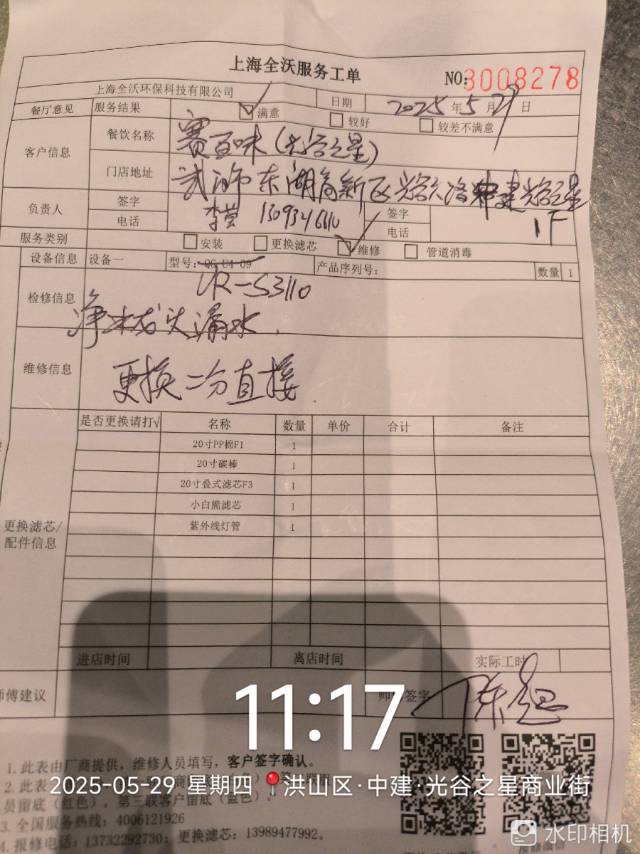 上海全沃服务工单
NO:3008278
上海全沃环保科技有限公司 日期 2025年5月29日
餐厅意见 服务结果 满意 较好 较差不满意
客户信息 餐饮名称 赛百味(光谷之星)
门店地址 武汉市东湖高新区光谷大道中建光谷之星
1F
负责人 签字 李莹 签字
电话 电话
服务类别 安装 更换滤芯 维修 管道消毒
设备信息 设备一 型号:QG-U4-09 产品序列号: 数量 1
UR-S3110
检修信息 净水龙头漏水.
维修信息 更换二分直接.
是否更换请打√ 名称 数量 单价 合计 备注
20寸PP棉F1 1
20寸碳棒 1
20寸叠式滤芯F3 1
小白熊滤芯 1
紫外线灯管 1
更换滤芯/
配件信息
进店时间 离店时间 实际工时
师傅建议 签字
11:17
1. 此表由厂商提供，维修人员填写，客户签字确认。
2. 此表
2025-05-29 星期四 洪山区·中建·光谷之星商业街
员留底（红色），第三联客户留底（蓝色）
3. 全国服务热线: 4006121926
4. 报修电话: 13732292730; 更换滤芯: 13989477992.
水印相机